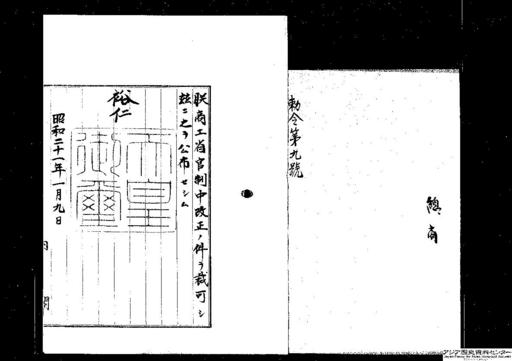 勅令第九號
總商
朕商工省官制中改正ノ件ヲ裁可シ
玆ニ之ヲ公布セシム
裕仁
天皇
御璽
昭和二十一年一月九日
内閣
アジア歴史資料センター
Japan Center for Asian Historical Records